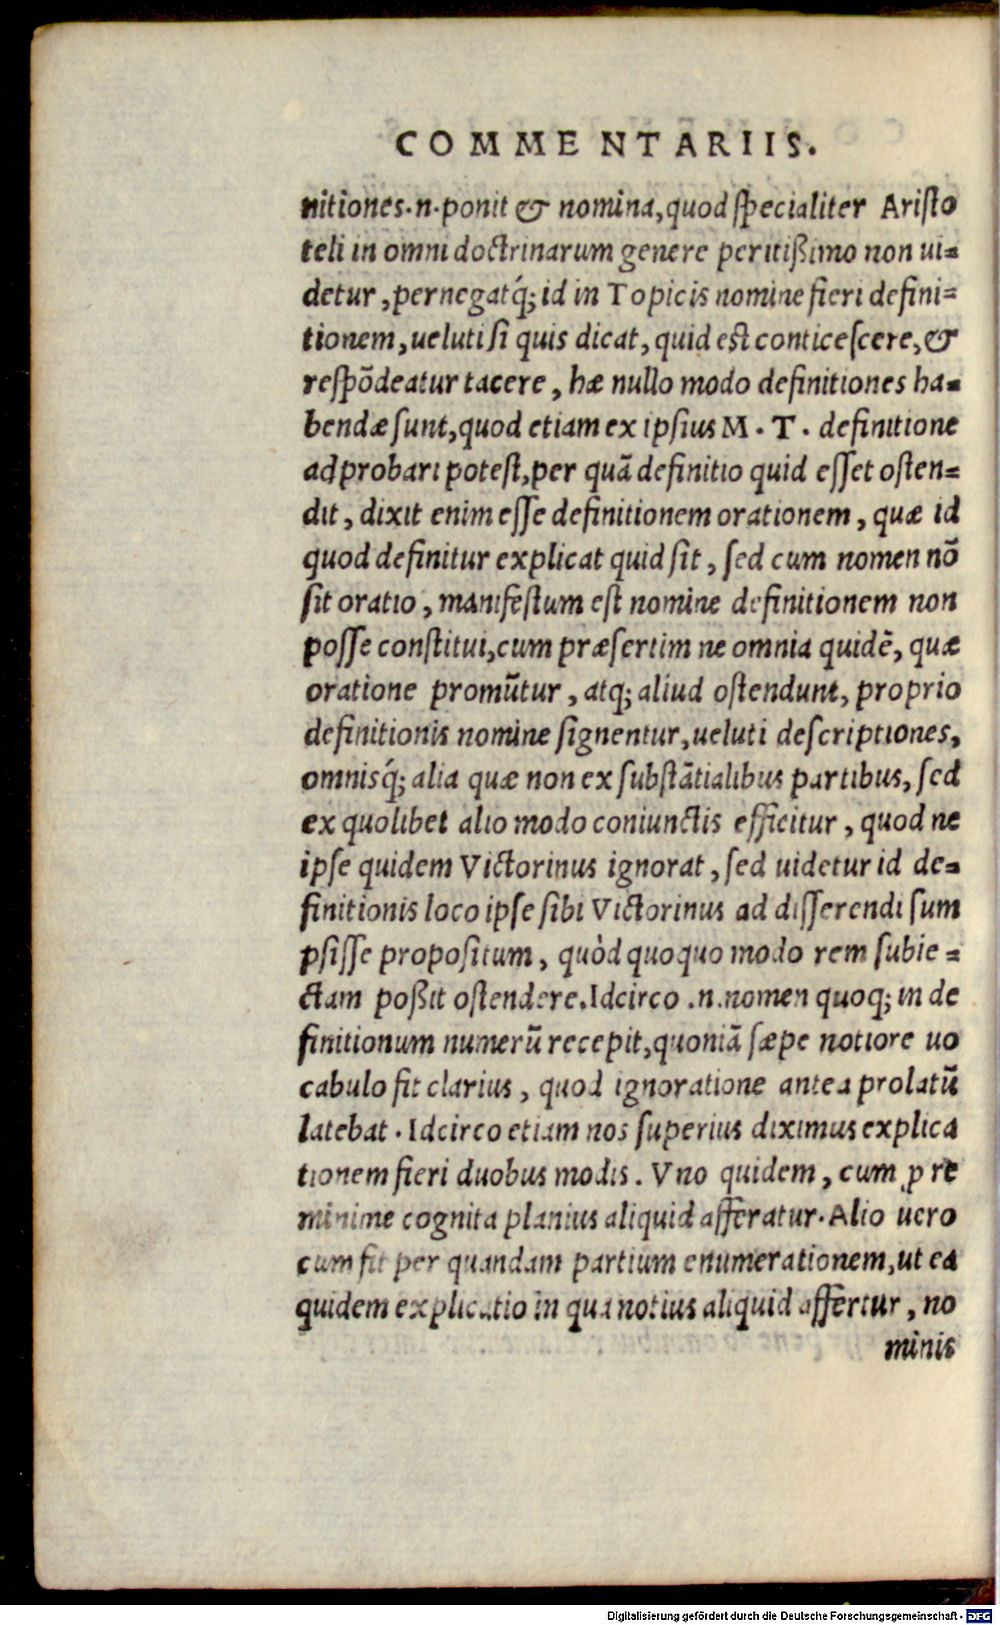 COMMENTARIIS.
nitiones.n.ponit & nomina, quod specialiter Aristo
teli in omni doctrinarum genere peritißimo non ui=
detur, pernegatq́; id in Topicis nomine fieri defini=
tionem, ueluti si quis dicat, quid est conticescere, &
respōdeatur tacere, hæ nullo modo definitiones ha=
bendæ sunt, quod etiam ex ipsius M. T. definitione
adprobari potest, per quā definitio quid esset osten=
dit, dixit enim esse definitionem orationem, quæ id
quod definitur explicat quid sit, sed cum nomen nō
sit oratio, manifestum est nomine definitionem non
posse constitui, cum præsertim ne omnia quidē, quæ
oratione promūtur, atq; aliud ostendunt, proprio
definitionis nomine signentur, ueluti descriptiones,
omnisq́; alia quæ non ex substātialibus partibus, sed
ex quolibet alio modo coniunctis efficitur, quod ne
ipse quidem Victorinus ignorat, sed uidetur id de=
finitionis loco ipse sibi Victorinus ad disserendi sum
psisse propositum, quòd quoquo modo rem subie=
ctam poßit ostendere. Idcirco .n. nomen quoq; in de
finitionum numerū recepit, quoniā sæpe notiore uo
cabulo fit clarius, quod ignoratione antea prolatū
latebat. Idcirco etiam nos superius diximus explica
tionem fieri duobus modis. Vno quidem, cum ꝓ re
minime cognita planius aliquid afferatur. Alio uero
cum fit per quandam partium enumerationem, ut ea
quidem explicatio in qua notius aliquid affertur, no
minis
Digitalisierung gefördert durch die Deutsche Forschungsgemeinschaft - DFG